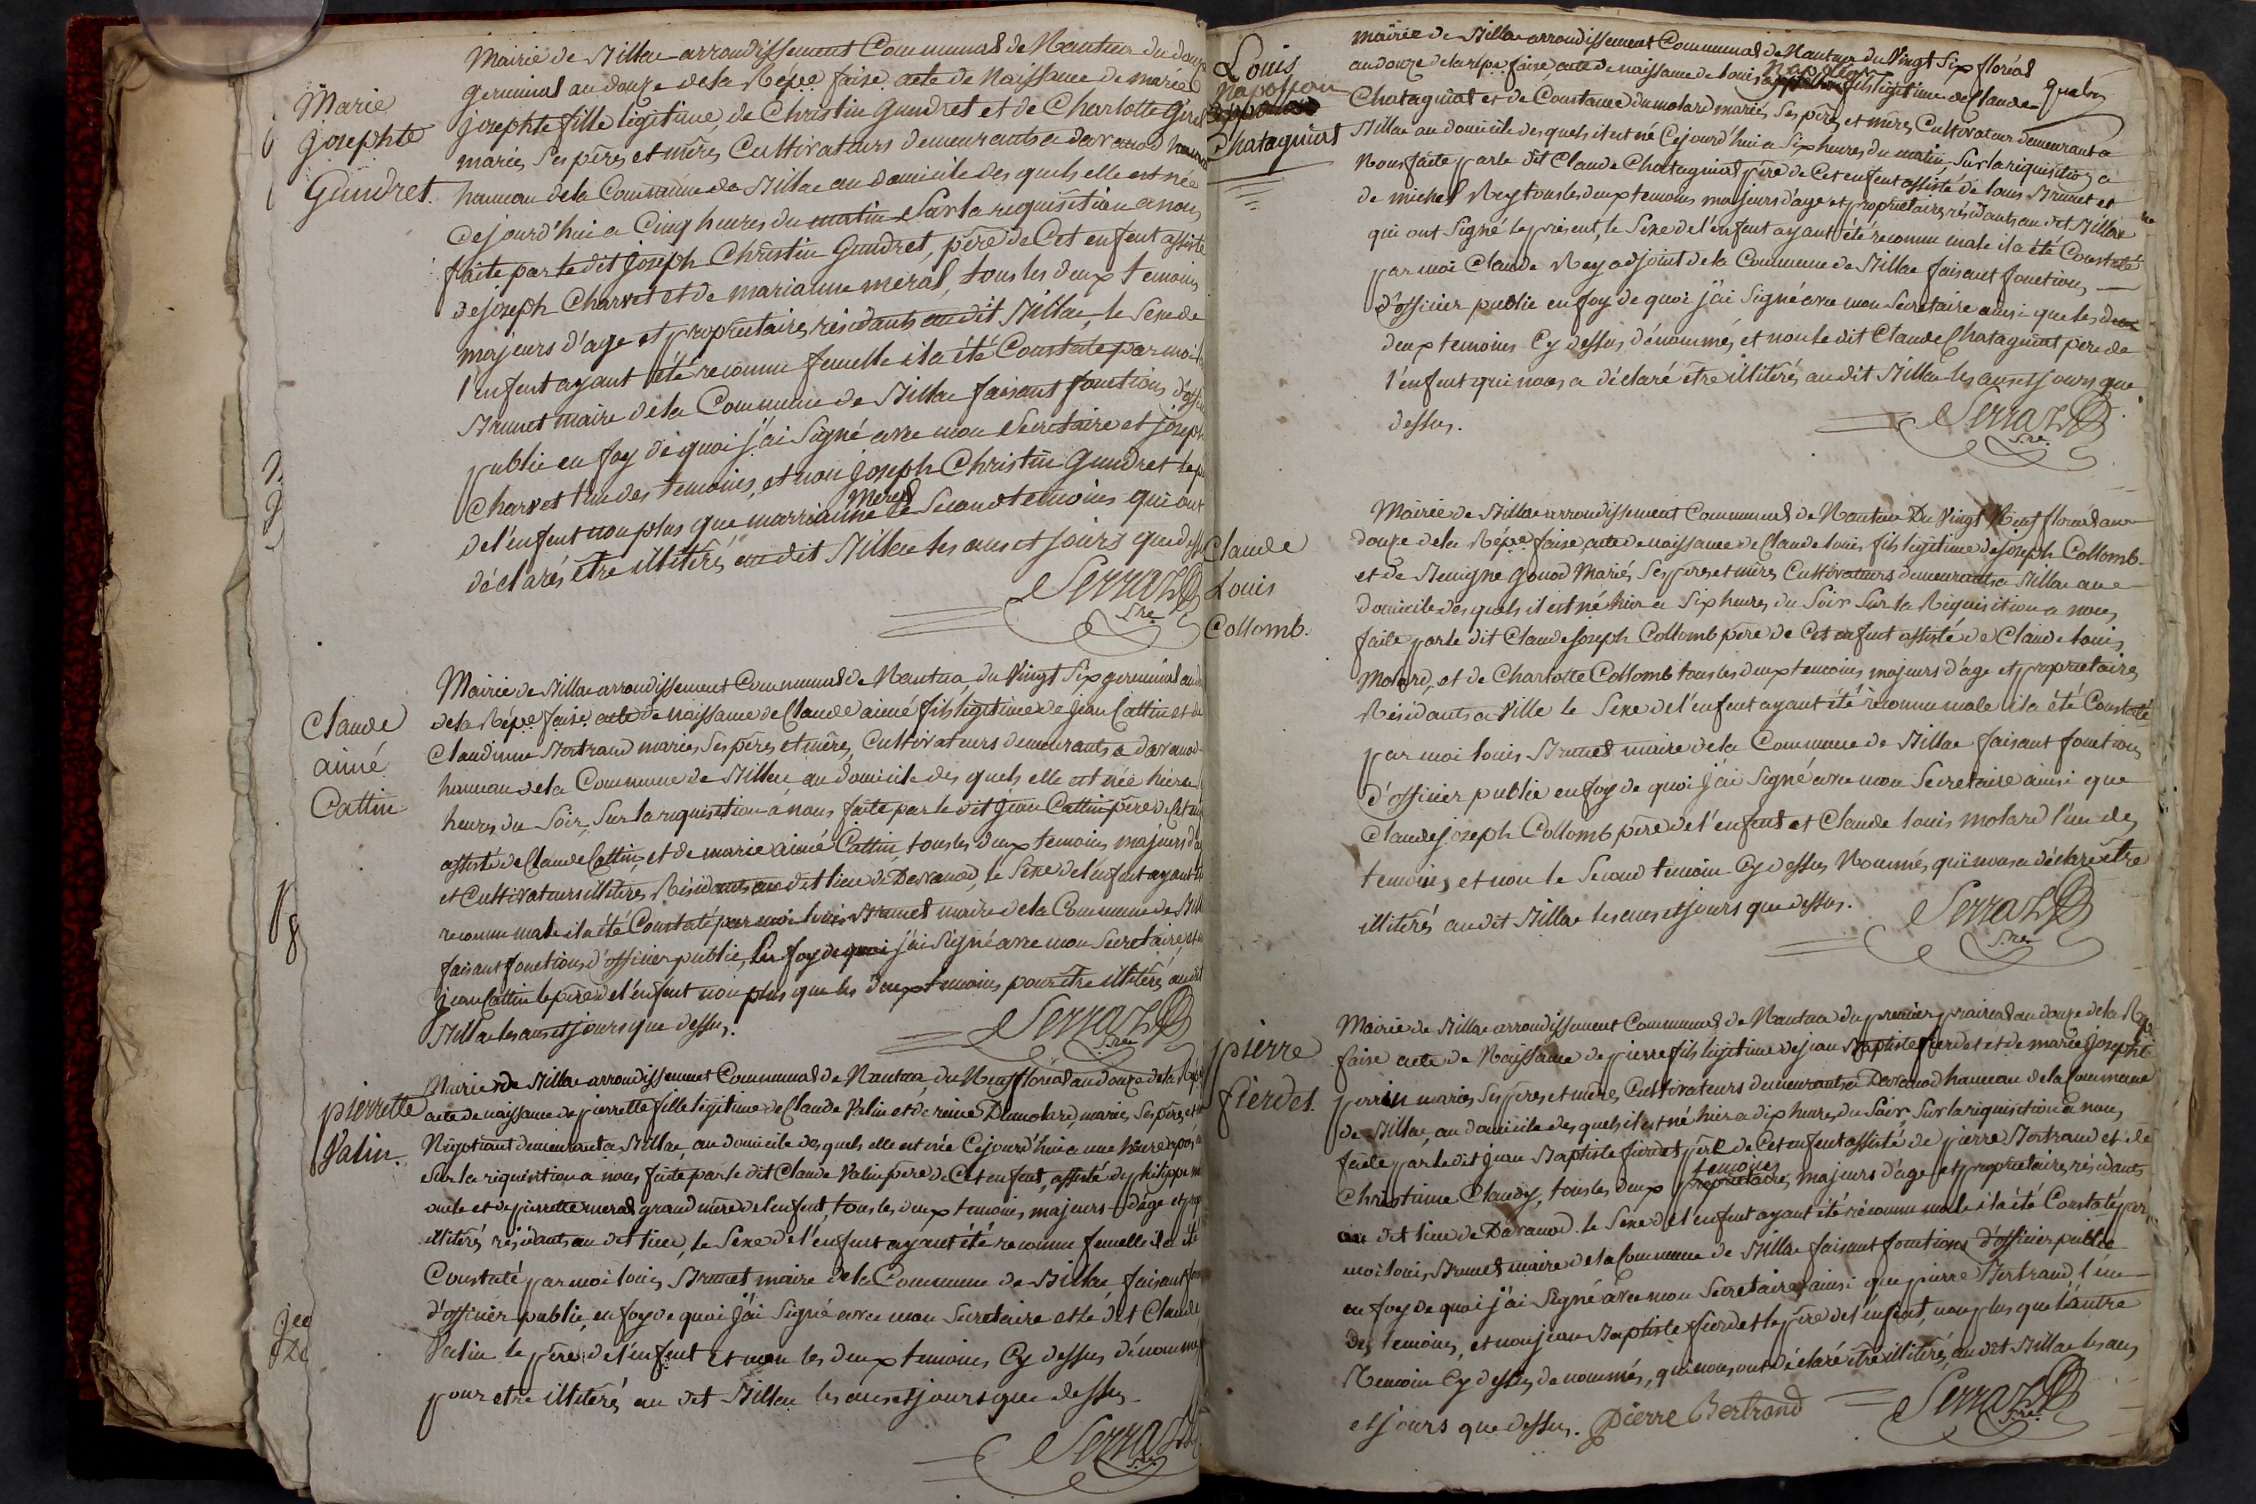 Marie
Josephte
Gundret.
Mairie de Billae arrondissement Communal de Nantua du douze
germinal an douze de la Répe. faise. acte de Naissance de marie
josephte fille légitime, de Christin Gundret et de Charlotte
mariés ses pères et mères Cultivateurs demeurants a davanod
hameau de la Commune de Billae au domicile des quels elle est née
Cejourd'hui a Cinq heures du matin Sur la requisition a nous
faite par le dit Joseph Christin Gundret, père de Cet enfent assisté
de joseph Charvet et de marianne meral, tous les deux temoins
majeurs d'age et proprietaires résidants au dit Billae, le Sexe de
l'enfent ayant été reconnu femelle il a été Constaté par moi
Brunet maire de la Commune de Billae faisant fonctions
public en foy de quoi j'ai Signé avec mon Secretaire et joseph
Charvet l'un des temoins, et non joseph Christin Gundret le
de l'enfent non plus que marrianne meral le Second temoins qui ont
déclarés être illitérés au dit Billae les ans et jours que dessus
Serraz
Sre.
Claude
aimé
Cattin
Mairie de Billae arrondissement Communal de Nantua, du Vingt Six germinal an
de la Répe. faise. acte de naissance de Claude aimé fils légitime de jean Cattin et de
Claudinne Bertrand mariés Ses pères et mères, Cultivateurs demeurants a davanod
hameau de la Commune de Billae, au domicile des quels elle est née hier a
heures du Soir, Sur la requisition a nous faite par le dit jean Cattin père de Cet
assisté de Claude Cattin, et de marie aimé Cattin, tous les deux temoins majeurs
et Cultivateurs illitérés Résidants au dit lieu de Davanod, le Sexe de l'enfent ayant
reconnu male il a été Constaté par moi louis Brunet maire de la Commune de
faisant fonctions d'officier public, En foy de quoi j'ai Signé avec mon Secretaire et
jean Cattin le père de l'enfent non plus que les deux temoins pour être illitérés au dit
Billae les ans et jours que dessus.
Serraz
Sre.
pierrette
Valin.
Mairie de Billae arrondissement Communal de Nantua du Neuf floréal an douze de la
acte de naissance de pierrette fille légitime de Claude Valin et de reine Dumolard, mariés Ses pères et
Négotiant demeurants a Billae, au domicile des quels elle est née Cejourd'hui a une heure
Sur la requisition a nous faite par le dit Claude Valin père de Cet enfent, assisté de philippe
oncle et de pierrette meral grand mère de l'enfent, tous les deux temoins majeurs d'age et
illitérés résidants au dit lieu, le Sexe de l'enfent ayant été reconnu femelle il a été
Constaté par moi louis Brunet maire de la Commune de Billae faisant
d'officier public, en foy de quoi j'ai Signé avec mon Secretaire et le dit Claude
Valin le père de l'enfent et non les deux temoins Cy dessus dénommés
pour etre illitérés au dit Billae les ans et jours que dessus.
Serraz
Sre.
Louis
Napoleon
Chatagniat
mairie de Billae arrondissement Communal de Nantua du Vingt Six floréal
an douze de la répe. faise. acte de naissance de louis Napoleon fils légitime de Claude
Chatagniat et de Constance dumolard mariés Ses pères et mères Cultivateur demeurant a
Billae au domicile des quels il est né Cejourd'hui a Six heures du matin Sur la riquisition a
Nous faite par le dit Claude Chatagniat père de Cet enfent assisté de louis Brunet et
de michel Rey tous les deux temoins majeurs d'age et proprietaires résidants au dit Billae
qui ont Signé le présent, le Sexe de l'enfent ayant été reconnu male il a été Constaté
par moi Claude Rey adjoint de la Commune de Billae faisant fonctions
d'officier public en foy de quoi j'ai Signé avec mon Secretaire ainsi que les deux
deux temoins Cy dessus dénommés, et non le dit Claude Chatagniat père de
l'enfent qui nous a déclaré être illitéré, au dit Billae les ans et jours que
dessus.
Serraz
Sre.
Claude
Louis
Collomb.
Mairie de Billae arrondissement Communal de Nantua Du Vingt Neuf floreal an
douze de la Répe. faise. acte de naissance de Claude louis fils légitime de Joseph Collomb
et de Benigne gonod Mariés Ses pères et mères Cultivateurs demeurants a Billae au
domicile des quels il est né hier a Six heures du Soir Sur la Réquisition a nous
faite par le dit Claude Joseph Collomb père de Cet enfent assisté de Claude louis
Molard, et de Charlotte Collomb tous les deux temoins majeurs d'age et proprietaires
Résidants a Ville le Sexe de l'enfent ayant été reconnu male il a été Constaté
par moi louis Brunet maire de la Commune de Billae faisant fonctions
d'officier public en foy de quoi j'ai Signé avec mon Secretaire ainsi que
Claude joseph Collomb père de l'enfent et Claude louis molard l'un des
temoins, et non le Second temoin Cy dessus Nommés, qui nous a déclaré être
illitérés au dit Billae les ans et jours que dessus.
Serraz
Sre.
pierre
fierdet.
Mairie de Billae arrondissement Communal de Nantua du premier prairial an douze de la Rép
faise. acte de Naissance de pierre fils légitime de jean Baptiste fierdet et de marie josephte
perrin mariés Ses pères et mères, Cultivateurs demeurants a Davanod hameau de la Commune
de Billae, au domicile des quels il est né hier a dix heures du Soir, Sur la riquisition a nous
faite par le dit jean Baptiste fierdet père de Cet enfent assisté de pierre Bertrand et de
Christinne Claudy, tous les deux proprietaires temoins, majeurs d'age et proprietaires résidants
au dit lieu de Davanod. le Sexe de l'enfent ayant été réconnu male il a été Constaté par
moi louis Brunet maire de la Commune de Billae faisant fonctions d'officier public
en foy de quoi j'ai Signé avec mon Secretaire, ainsi que pierre Bertrand, l'un
des temoins, et non jean Baptiste fierdet le père de l'enfent, non plus que l'autre
temoin Cy dessus denommés, qui nous ont déclaré être illitérés, au dit Billae les ans
et jours que dessus. pierre Bertrand
Serraz
Sre.